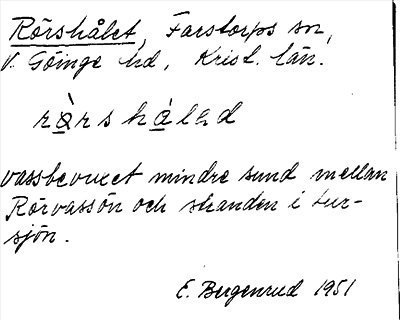 Rörshålet, Farstorps sn,
V. Göinge hd, Krist. län.
rö̀rshåled
vassbevuxet mindre sund mellan
Rörvassön och stranden i Lur-
sjön.
E. Bergenrud 1951